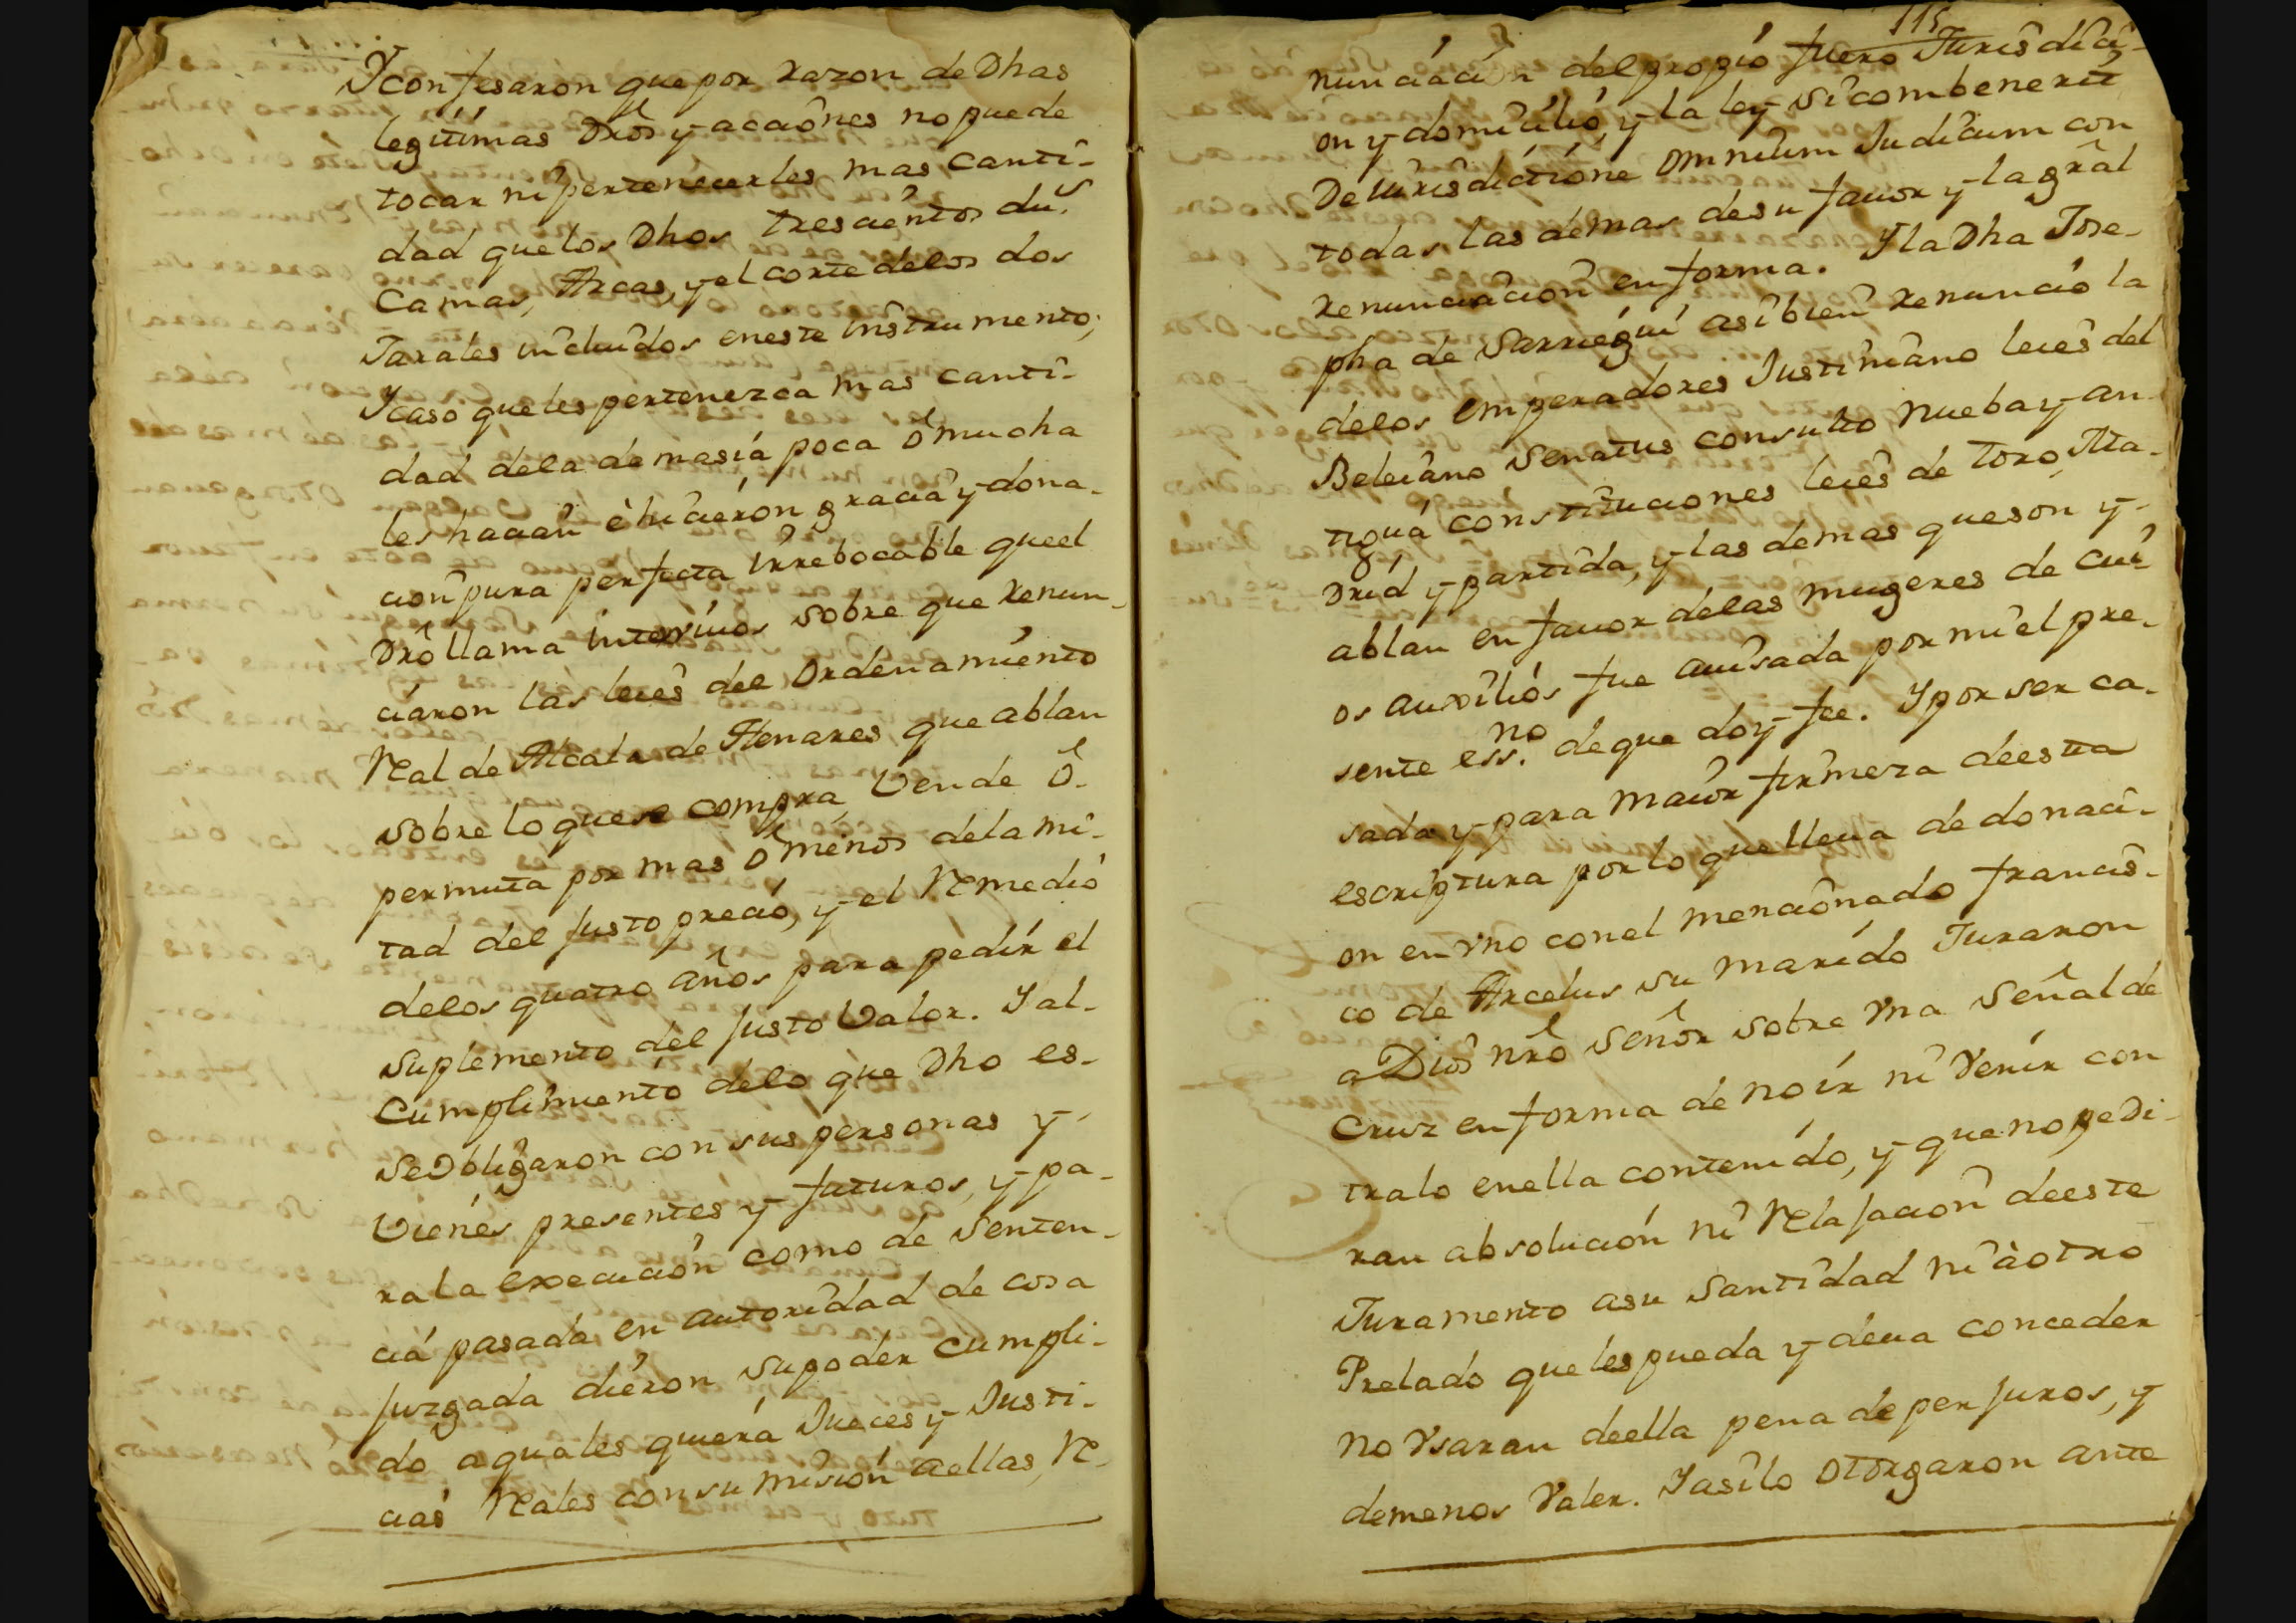 Y confesaron que por razon de Dhas
legitimas Dros y acciones no puede
tocar ni pertenecerles mas canti-
dad que los Dhos trescientos dus.
Camas, Arcas, y el corte de los dos
Jarales incluidos en este instrumento;
Y caso que les pertenezca mas canti-
dad de la demasia poca ò mucha
les hacian è hicieron gracia y dona-
cion pura perfecta irrebocable que el
Dro llama intervivos sobre que renun-
ciaron las leies del Ordenamiento
Real de Alcala de Henares, que ablan
sobre lo que se compra, Vende ò
permuta por mas ò menos de la mi-
tad del justo precio, y el Remedio
de los quatro años para pedir el
suplemento del justo Valor. Y al
Cumplimiento de lo que Dho es-
se Obligaron con sus personas y
Vienes presentes y futuros, y pa-
ra la execucion como de senten-
cia pasada en autoridad de cosa
juzgada dieron su poder Cumpli-
do a quales quiera Jueces y Justi-
cias Reales con sumision a ellas, Re-
115
nunciacion del propio fuero Jurisdici-
on y domicilio, y la ley si combenerit
De Jurisdictione Omnium Judicum con
todas las demas de su favor y la gral
renunciacion en forma. Y la Dha Jose-
pha de Sarriegui asi bien renunció la
de los Emperadores Justiniano leies del
Beleiano Senatus consulto nueba y an-
tigua constituciones leies de Toro, Ma-
Drid y partida, y las demas que son y
ablan en favor de las mugeres de cui-
os auxilios fue avisada por mi el pre-
sente essno. de que doy fee. Y por ser ca-
sada y para maior firmeza de esta
escriptura por lo que lleva de donaci-
on en vno con el mencionado francis-
co de Arcelus su marido Juraron
a Dios nro señor sobre vna señal de
Cruz en forma de no ir ni Venir con
tra lo en ella contenido, y que no pedi-
ran absolucion ni Relajacion de este
Juramento a su Santidad ni à otro
Prelado que les pueda y deva conceder
no Vsaran de ella pena de perjuros, y
de menos Valer. Y asi lo Otorgaron ante